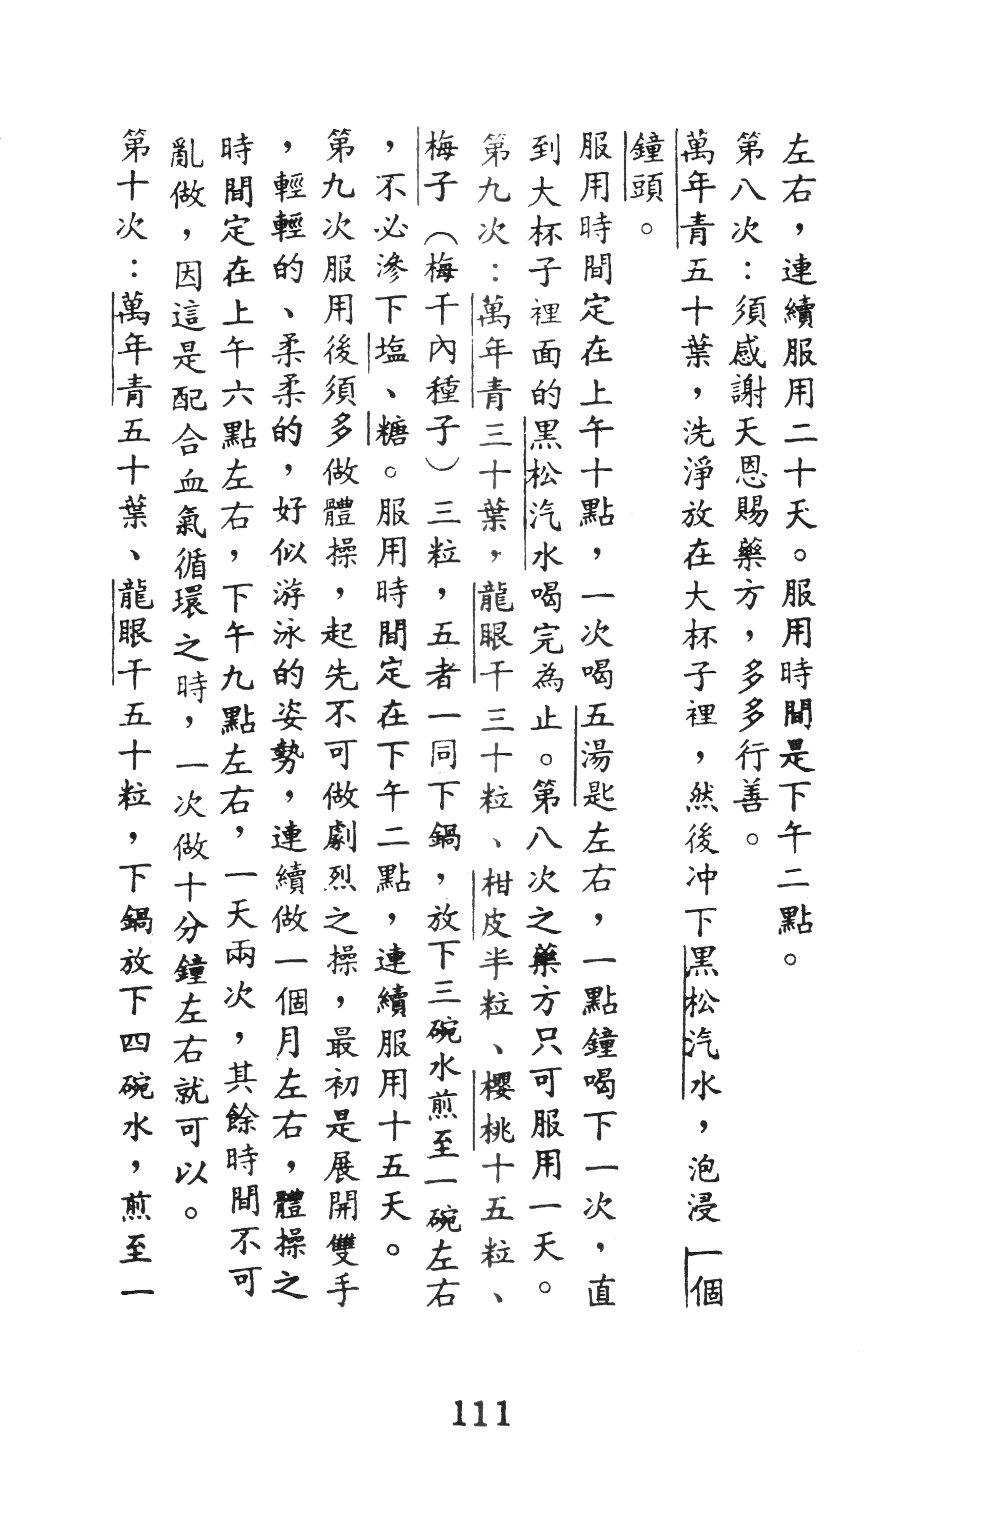 左右，連續服用二十天。服用時間是下午二點。
第八次：須感謝天恩賜藥方，多多行善。
萬年青五十葉，洗淨放在大杯子裡，然後冲下黑松汽水，泡浸一個
鐘頭。
服用時間定在上午十點，一次喝五湯匙左右，一點鐘喝下一次，直
到大杯子裡面的黑松汽水喝完為止。第八次之藥方只可服用一天。
第九次：萬年青三十葉，龍眼干三十粒、柑皮半粒、櫻桃十五粒、
梅子（梅干內種子）三粒，五者一同下鍋，放下三碗水煎至一碗左右
，不必滲下塩、糖。服用時間定在下午二點，連續服用十五天。
第九次服用後須多做體操，起先不可做劇烈之操，最初是展開雙手
，輕輕的、柔柔的，好似游泳的姿勢，連續做一個月左右，體操之
時間定在上午六點左右，下午九點左右，一天兩次，其餘時間不可
亂做，因這是配合血氣循環之時，一次做十分鐘左右就可以。
第十次：萬年青五十葉、龍眼干五十粒，下鍋放下四碗水，煎至一
111